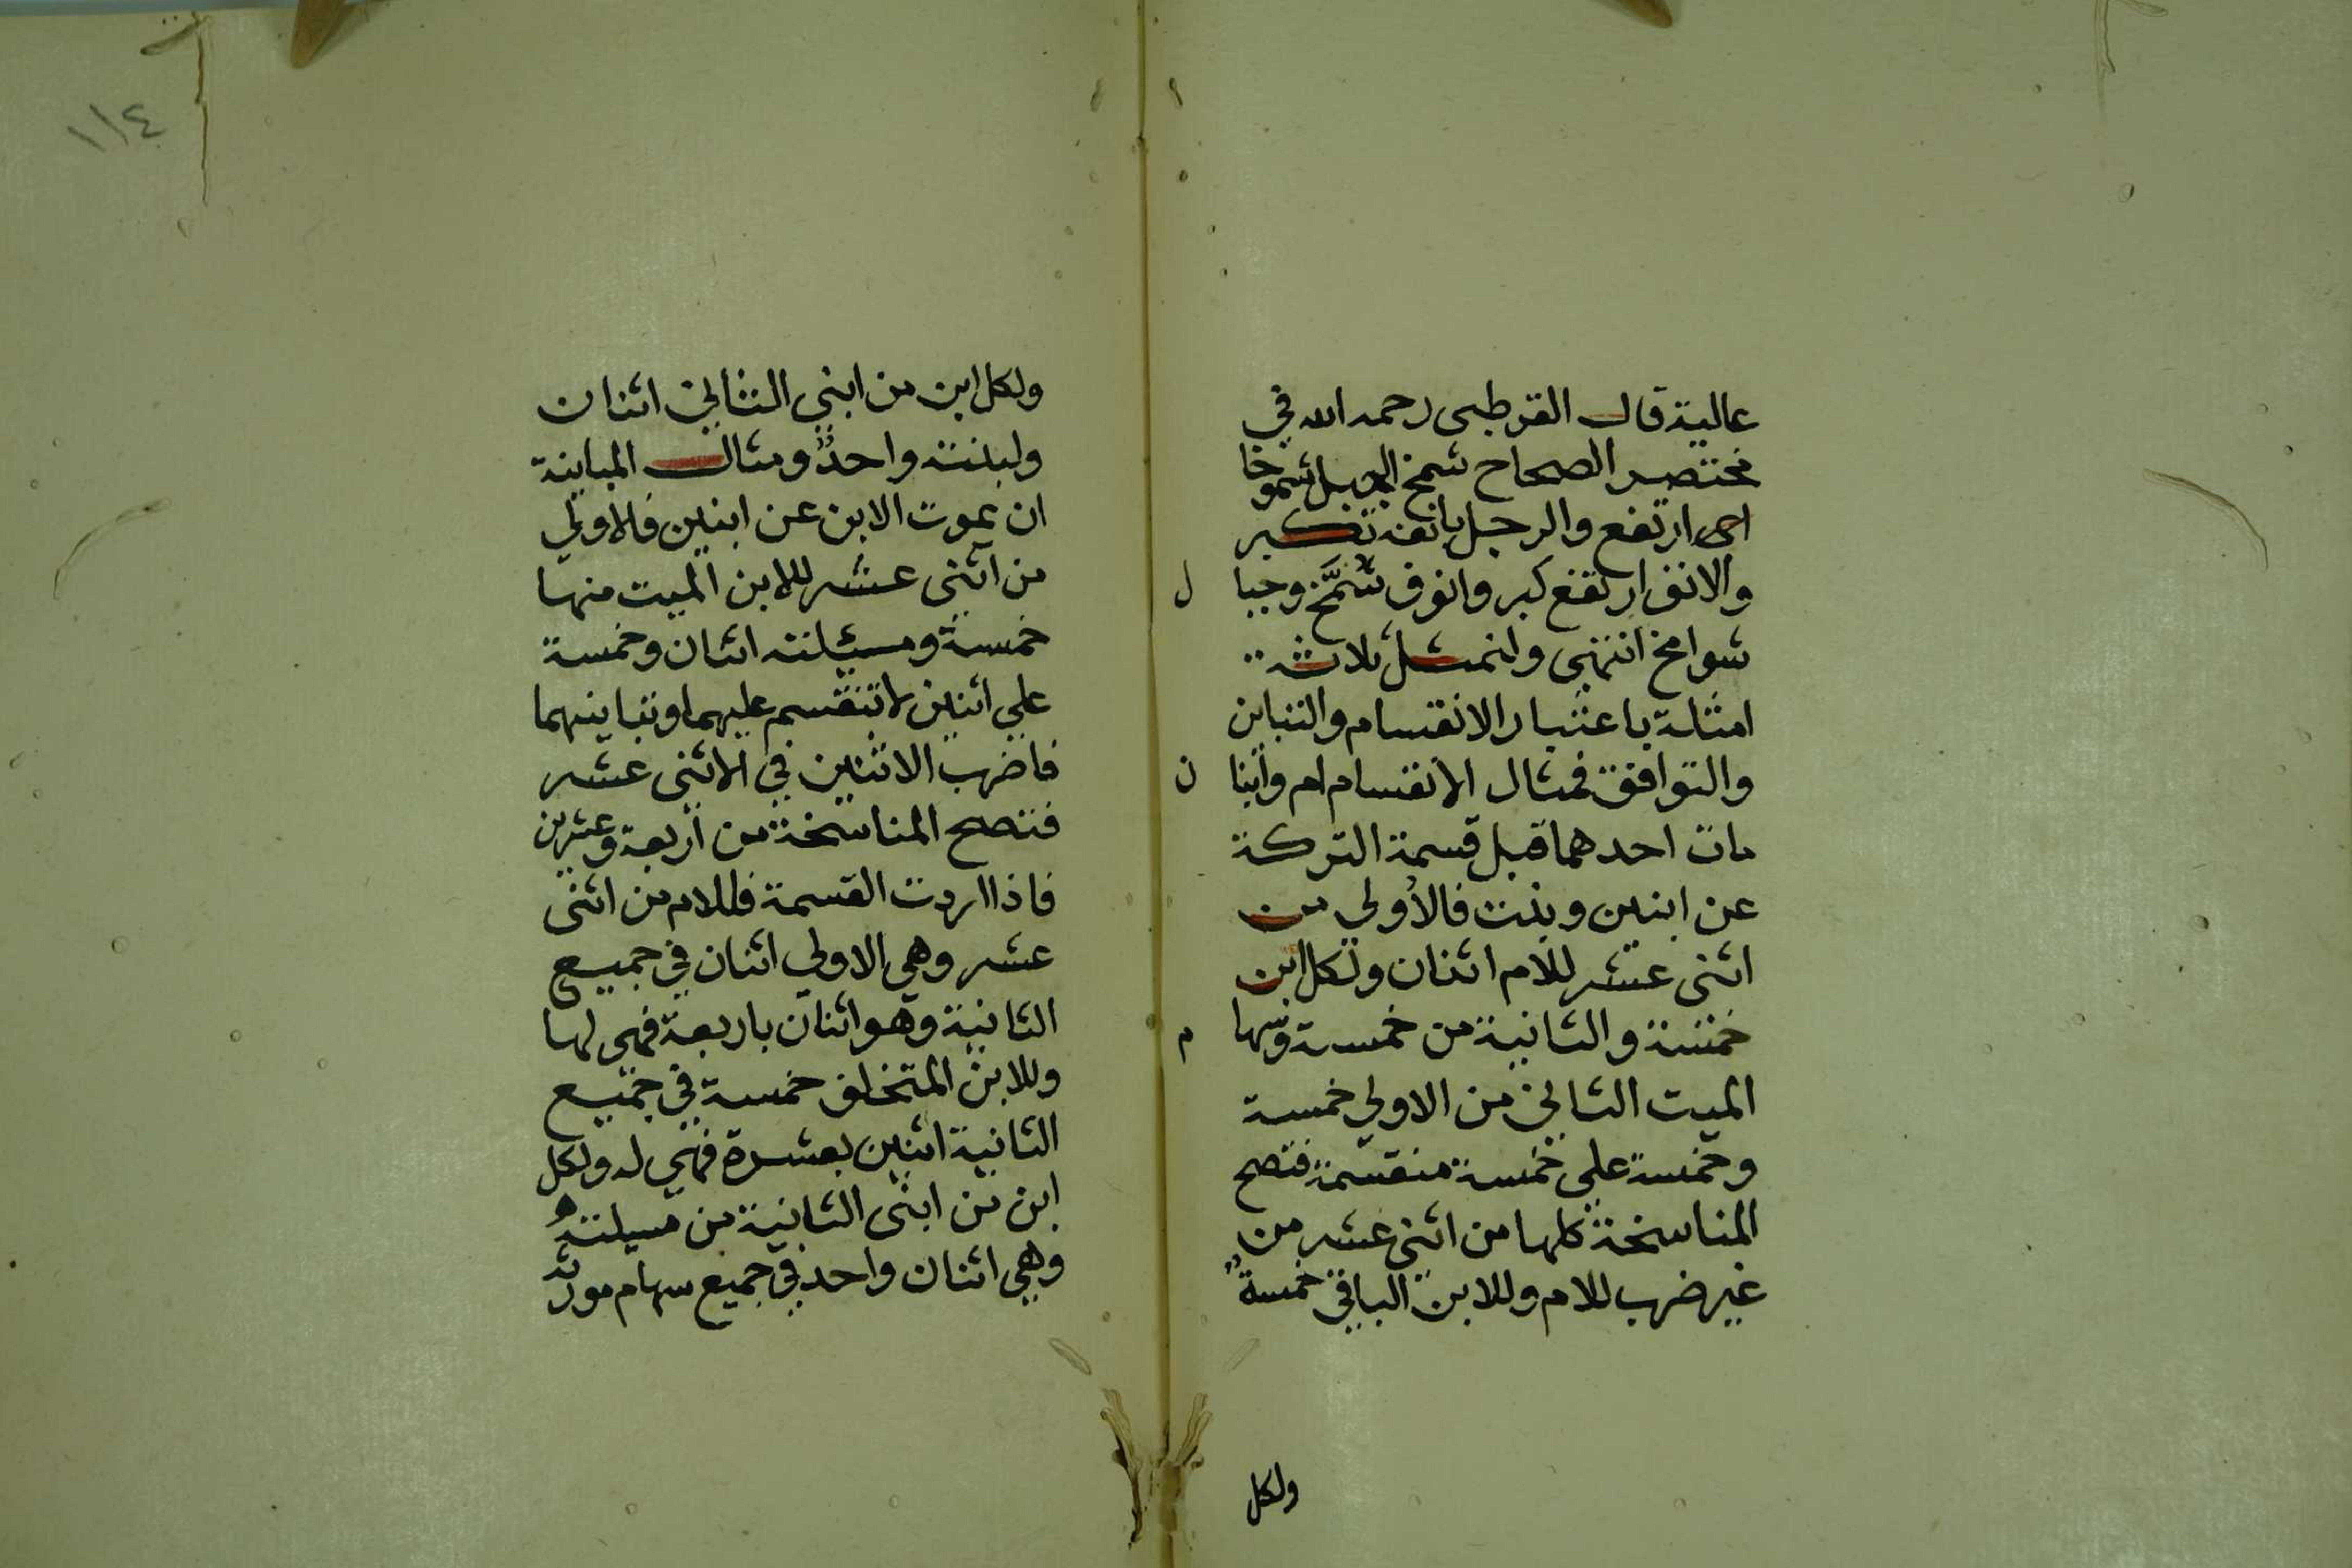 عالية قال القرطبي رحمه الله في
مختصر الصحاح شمخ الجبل شموخا
اي ارتفع والرجل بانفه تكبر
والانف ارتفع كبر وانوف شمَّخ وجبا ل
شوامخ انتهى ولنمثل ثلاثة
امثلة باعتبار الانقسام والتباين
والتوافق فمثال الانقسام ام وابنا ن
مات احدهما قبل قسمة التركة
عن ابنين وبنت فالاولي من
اثنى عشر للام اثنان ولكل ابن
خمسة والثانية من خمسة وسها م
الميت الثاني من الاولي خمسة
وخمسة على خمسة منقسمة فتصح
المناسخة كلها من اثني عشر من
غير ضرب للام وللابن الباقي خمسة
ولكل
١١٤
ولكل ابن من ابني الثاني اثنان
ولبنته واحدٌ ومثال المباينة
ان يموت الابن عن ابنين فالاولي
من اثنى عشر للابن الميت منها
خمسة ومسئلته اثنان وخمسة
علي اثنين لا تنقسم عليهما وتباينهما
فاضرب الاثنين في الاثنى عشر
فتصح المناسخة من اربعة وعشرين
فاذا اردت القسمة فللام من اثنى
عشر وهي الاولي اثنان في جميع
الثانية وهو اثنان باربعة فهي لها
وللابن المتخلف خمسة في جميع
الثانية اثنين بعشرة فهي له ولكل
ابن من ابنى الثانية من مسيلته
وهي اثنان واحد في جميع سهام مورثه